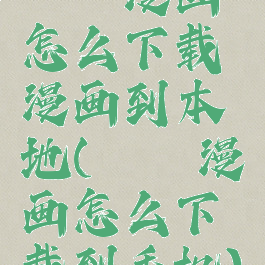 漫画
怎么下载
漫画到本
地(漫
画怎么下
载到手机)